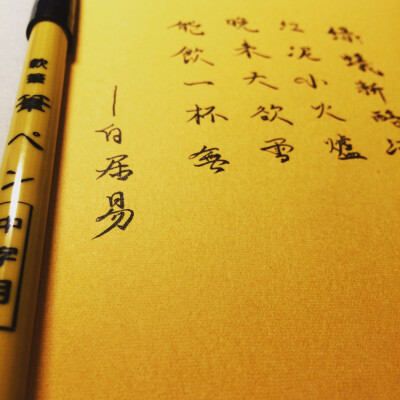 綠蟻新醅
紅泥小火爐
晚来天欲雪
能飲一杯無
—白居易
軟筆
筆ペン
中字用